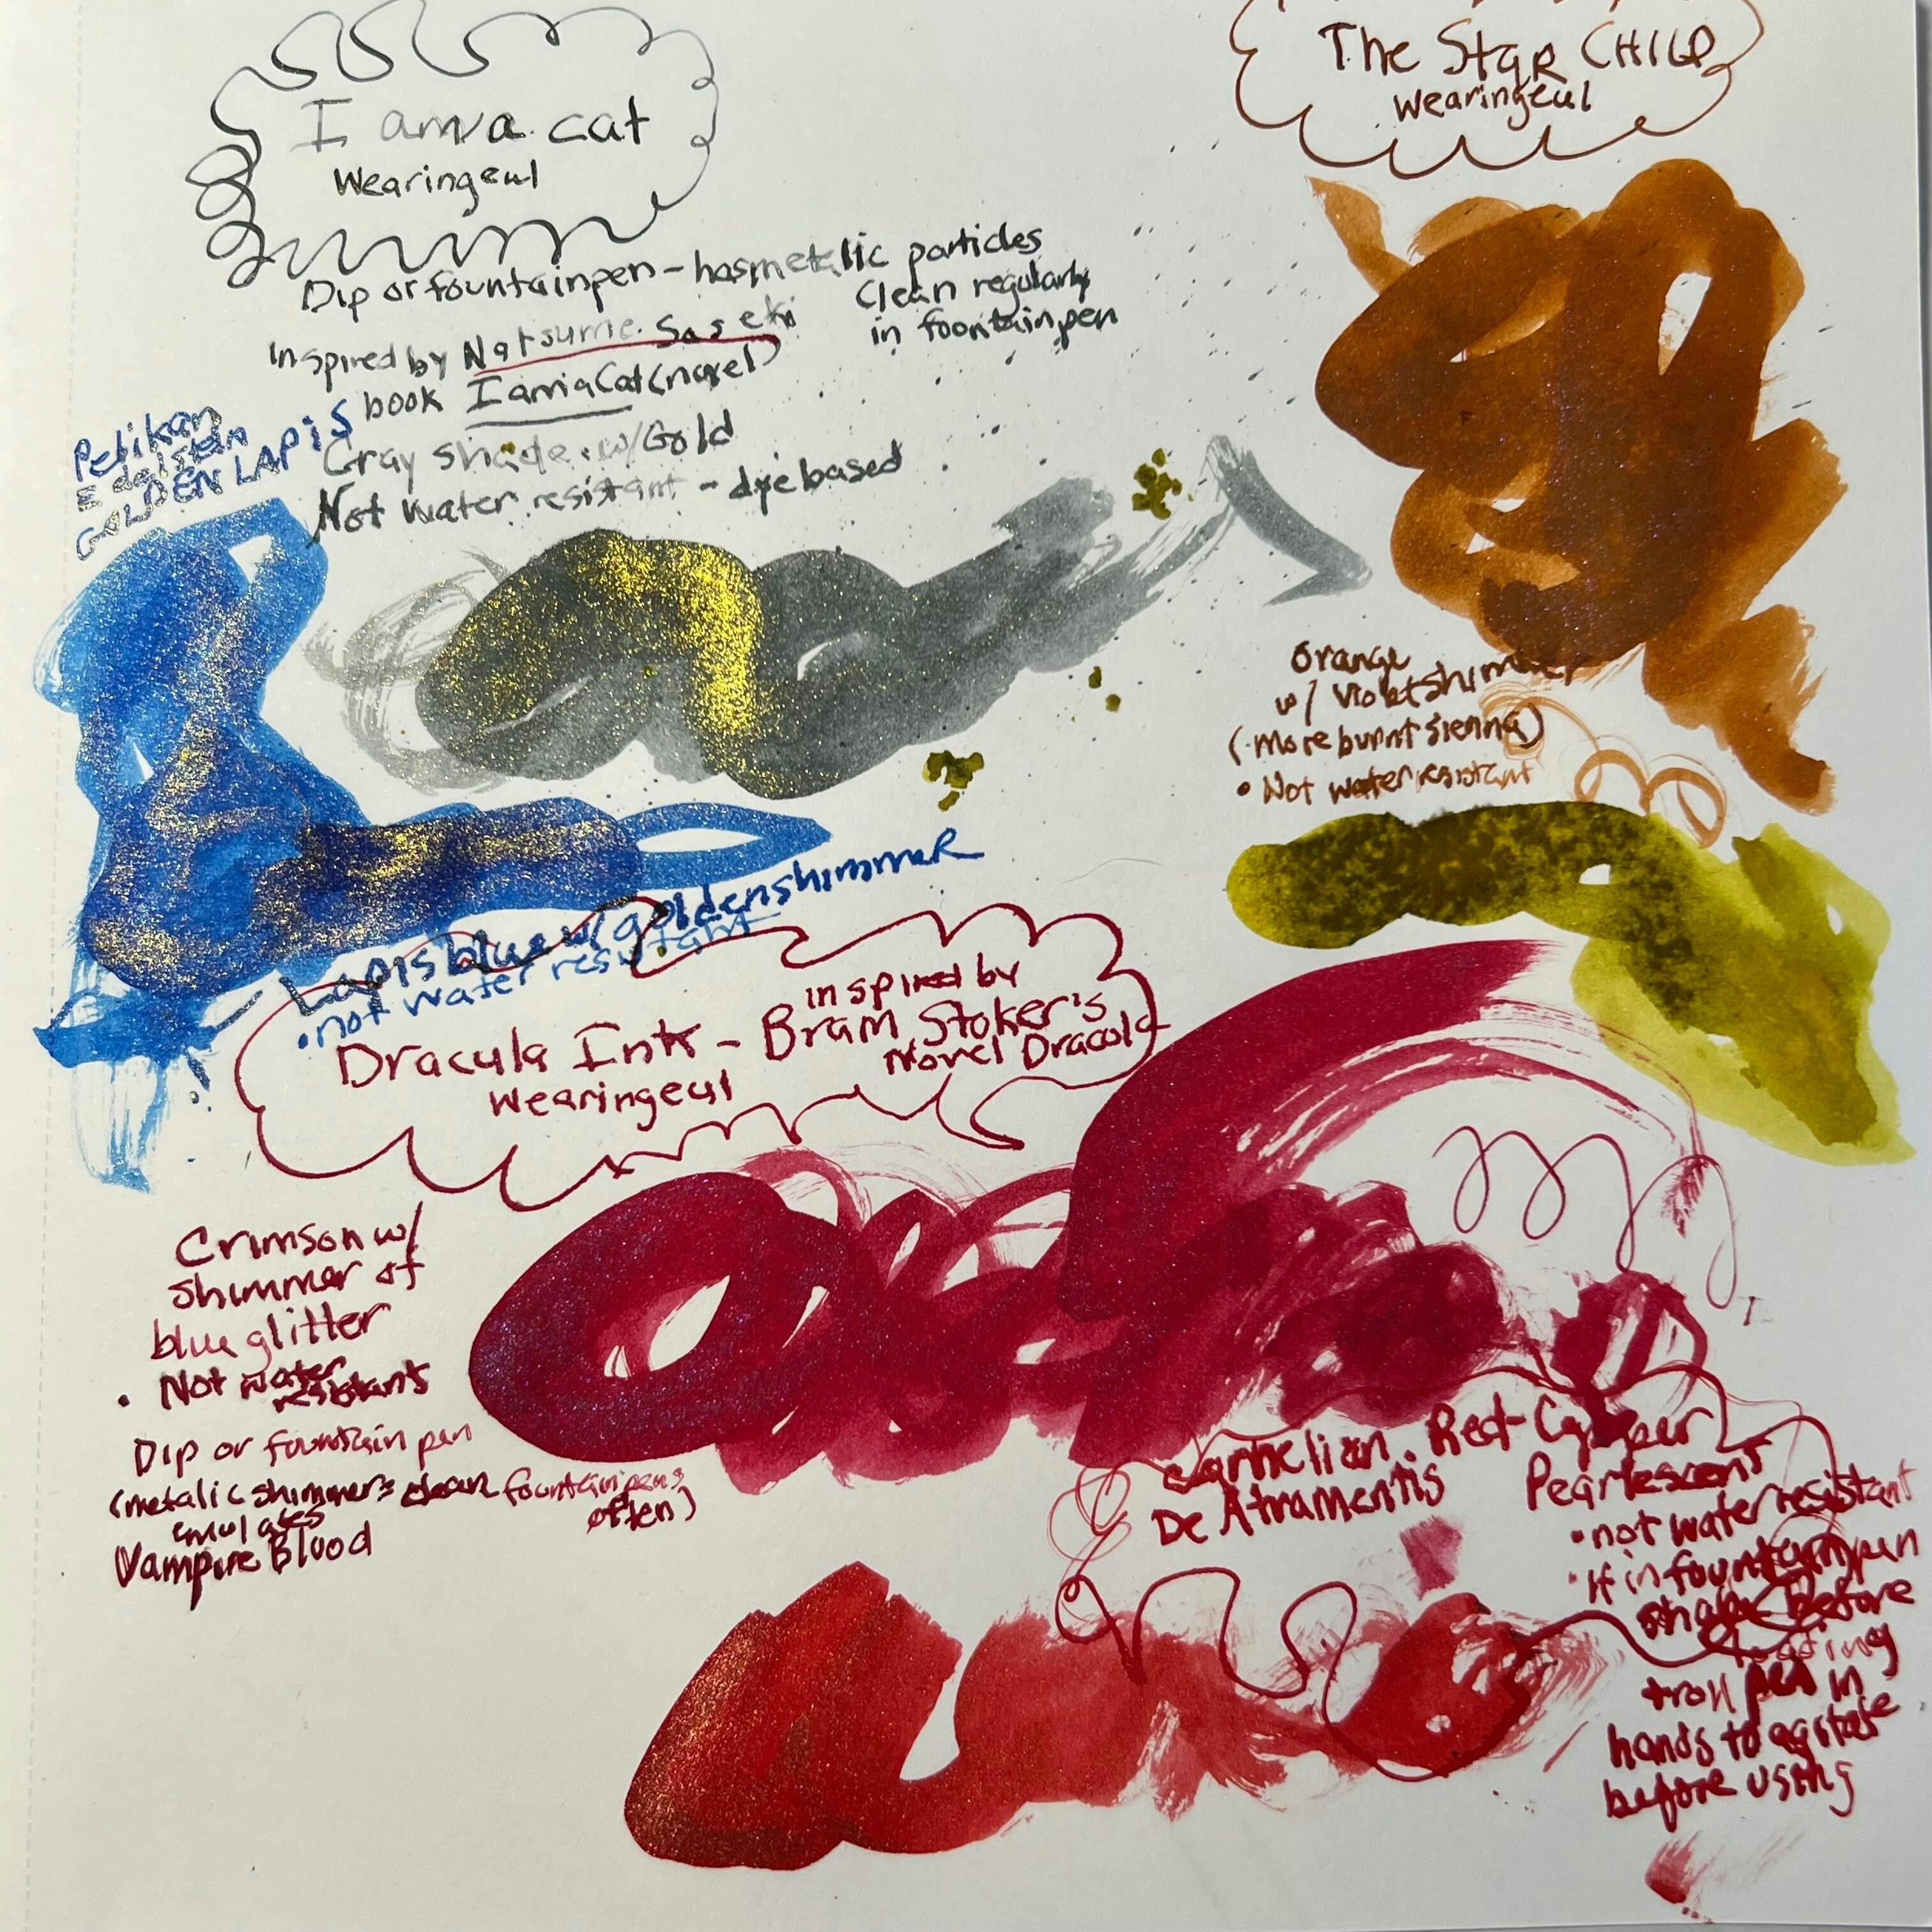 I am a cat
Wearingeul
Dip or fountain pen - has metelic particles
Clean regularly
in foontain pen
Inspired by Natsume Soseki
book I am a Cat (novel)
Gray shade w/ Gold
Not water resistant - dye based
The Star CHILD
Wearingeul
Orange
w/ violet shimmer
(more burnt sienna)
• Not water resistant
Pelikan
Edelstein
GOLDEN LAPIS
Lapis blue w/ golden shimmer
• not water resistant
Dracula Ink - inspired by
Bram Stoker's
Novel Dracola
Wearingeul
Crimson w/
shimmer of
blue glitter
• Not water
resistant
Dip or fountain pen
(metalic shimmer = clean fountain pens
often)
emulates
Vampire Blood
Carnelian. Red - Copper
Pearlescent
De Atramentis
• not water resistant
• If in fountain pen
shake before
loading
+ roll pen in
hands to agitate
before using